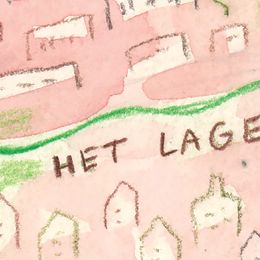 HET LAGE